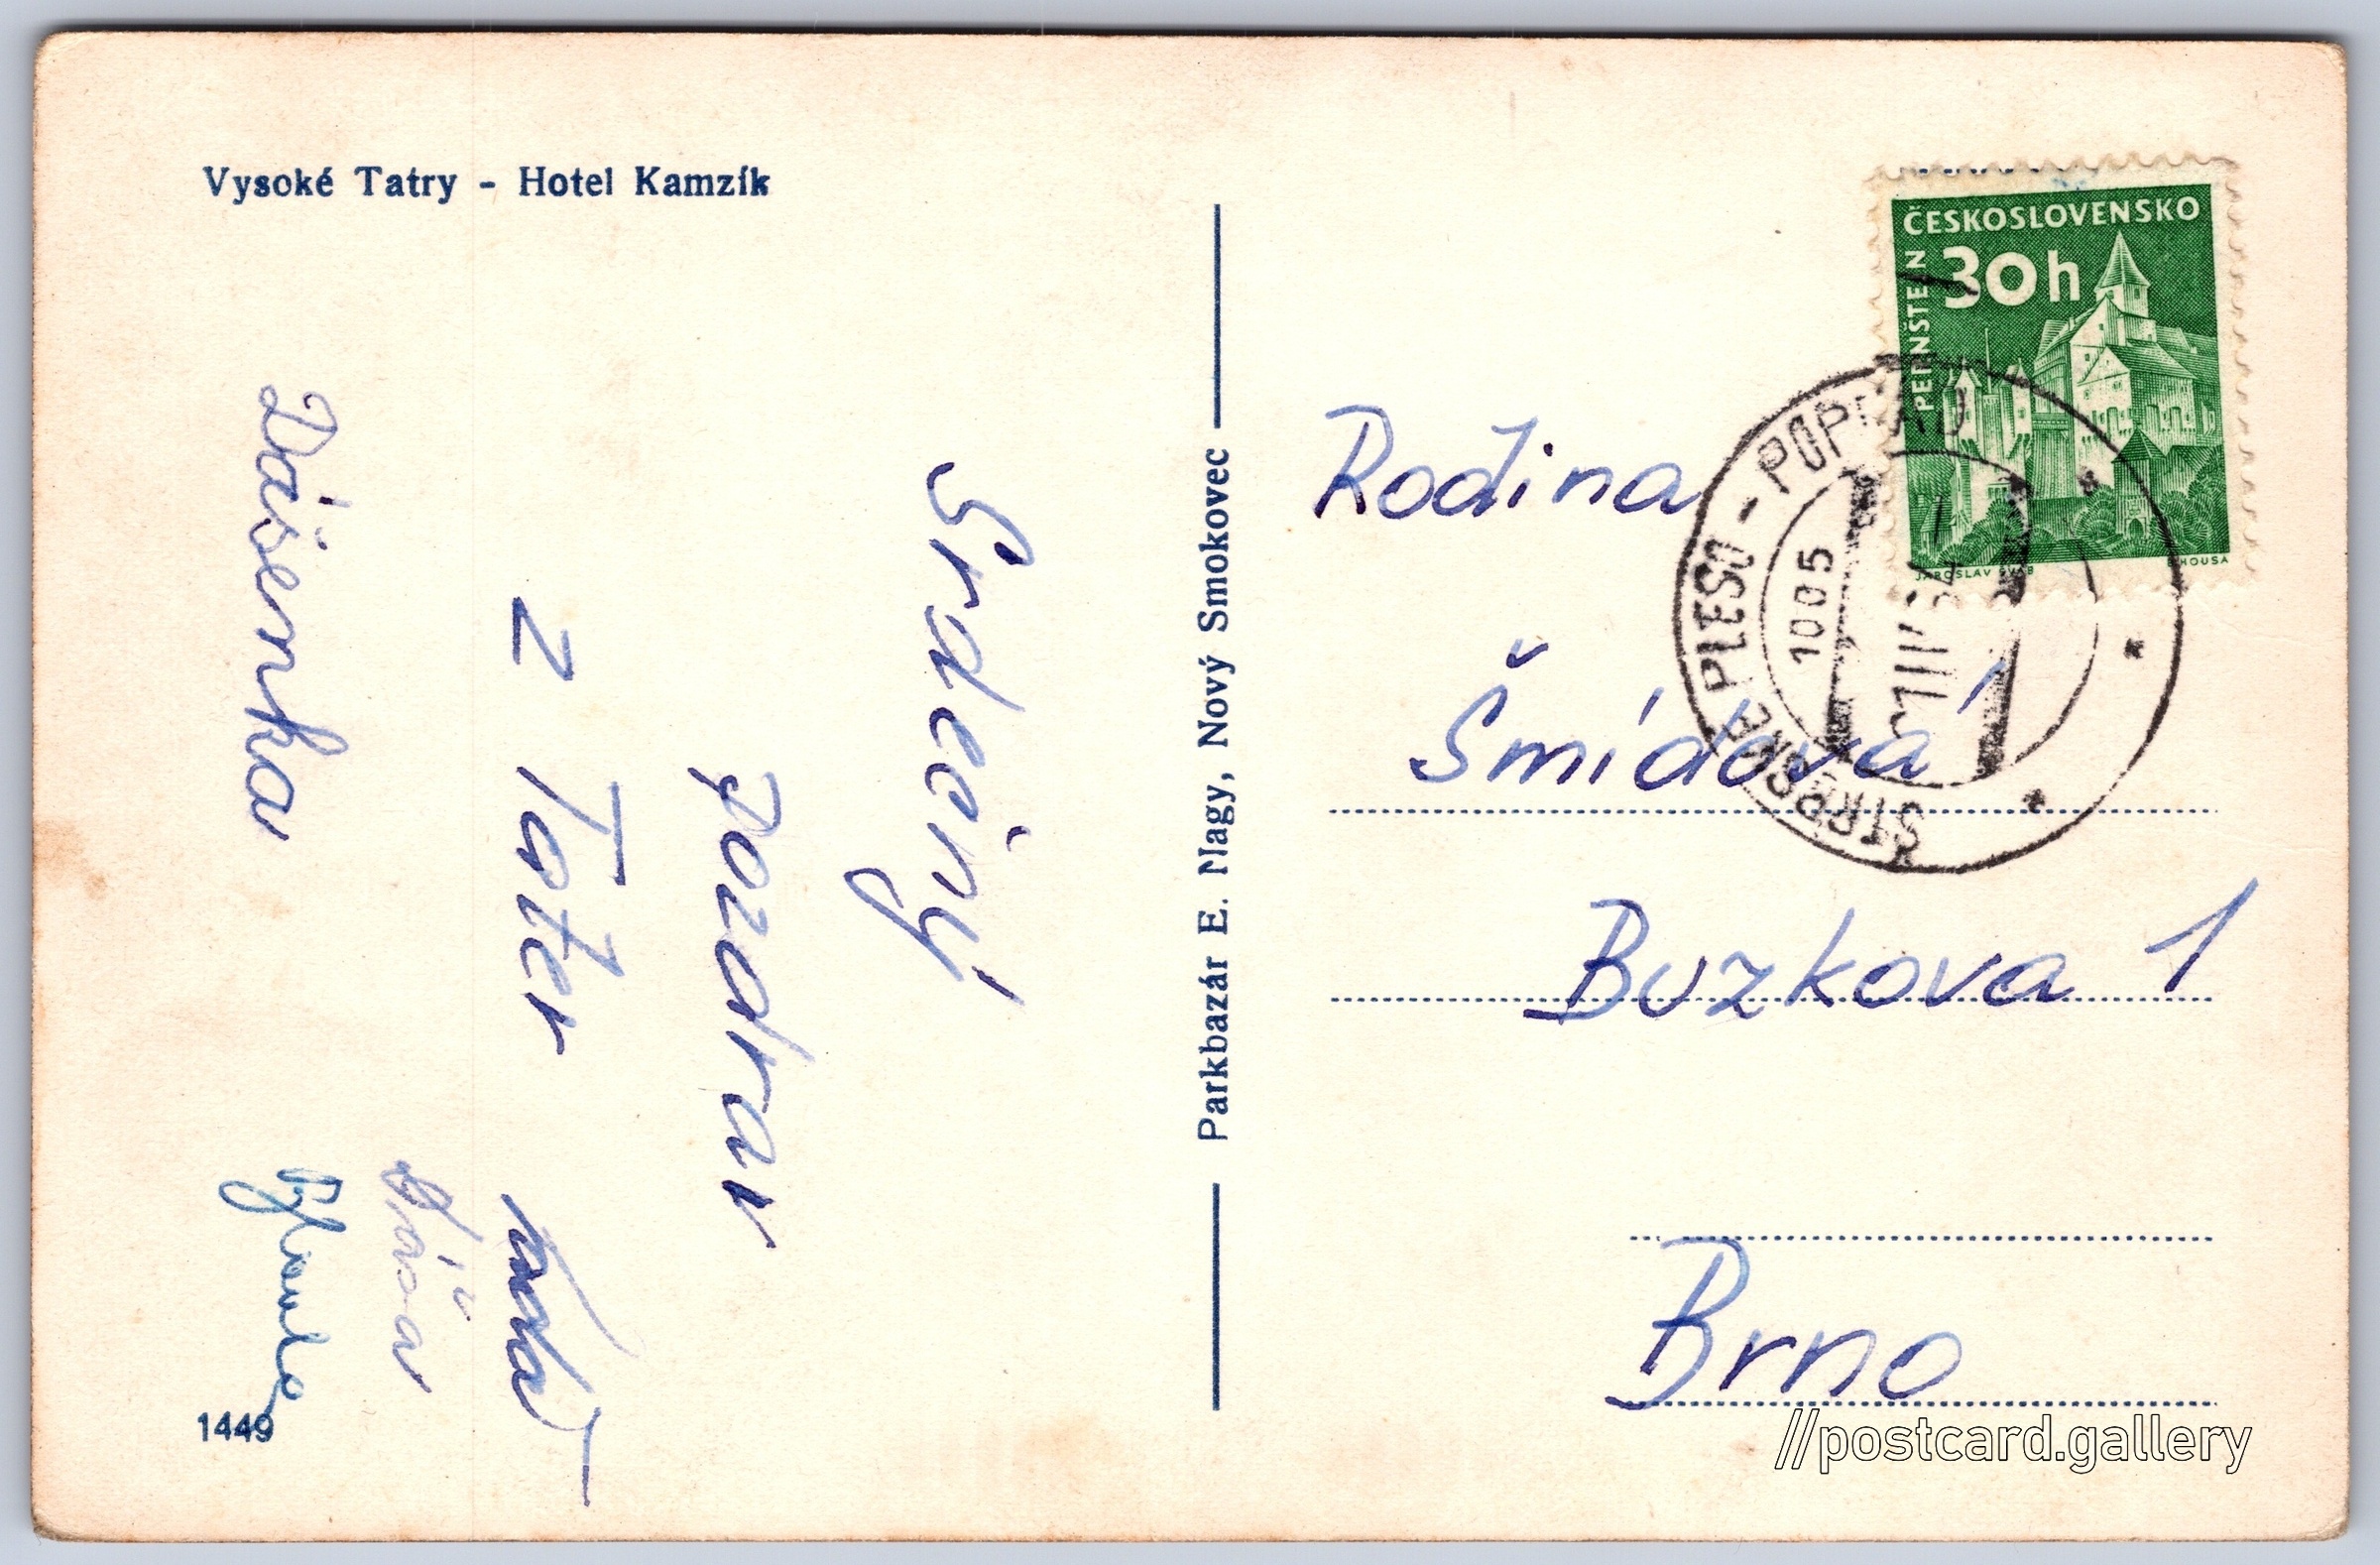 Vysoké Tatry - Hotel Kamzík
Srdečný
pozdrav
z Tater
Dášenka
1449
Parkbazár E. Nagy, Nový Smokovec
ČESKOSLOVENSKO
30h
PERNŠTEJN
JAROSLAV ŠVÁB
HOUSA
ŠTRBSKÉ PLESO - POPRAD
Rodina
Šmídová
Buzkova 1
Brno
//postcard.gallery